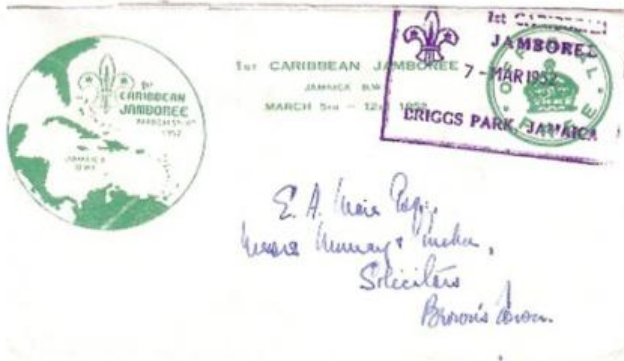 1ST
CARIBBEAN
JAMBOREE
1952
JAMAICA
B.W.I.
1ST CARIBBEAN JAMBOREE
JAMAICA B.W.I.
MARCH 5TH - 12TH 1952
1st CARIBBEAN
JAMBOREE
7 - MAR 1952
BRIGGS PARK, JAMAICA
OFFICIAL
FREE
E. A.
Solicitors
Brown's Town